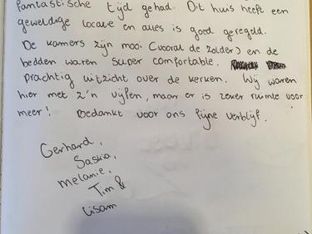 fantastische tijd gehad. Dit huis heeft een
geweldige locatie en alles is goed geregeld.
De kamers zijn mooi (vooral de zolder) en de
bedden waren super comfortable.
prachtig uitzicht over de kerken. Wij waren
hier met z'n vijfen, maar er is zeker ruimte voor
meer! Bedankt voor ons fijne verblijf.
Gerhard,
Saskia,
Melanie,
Tim &
Lisam